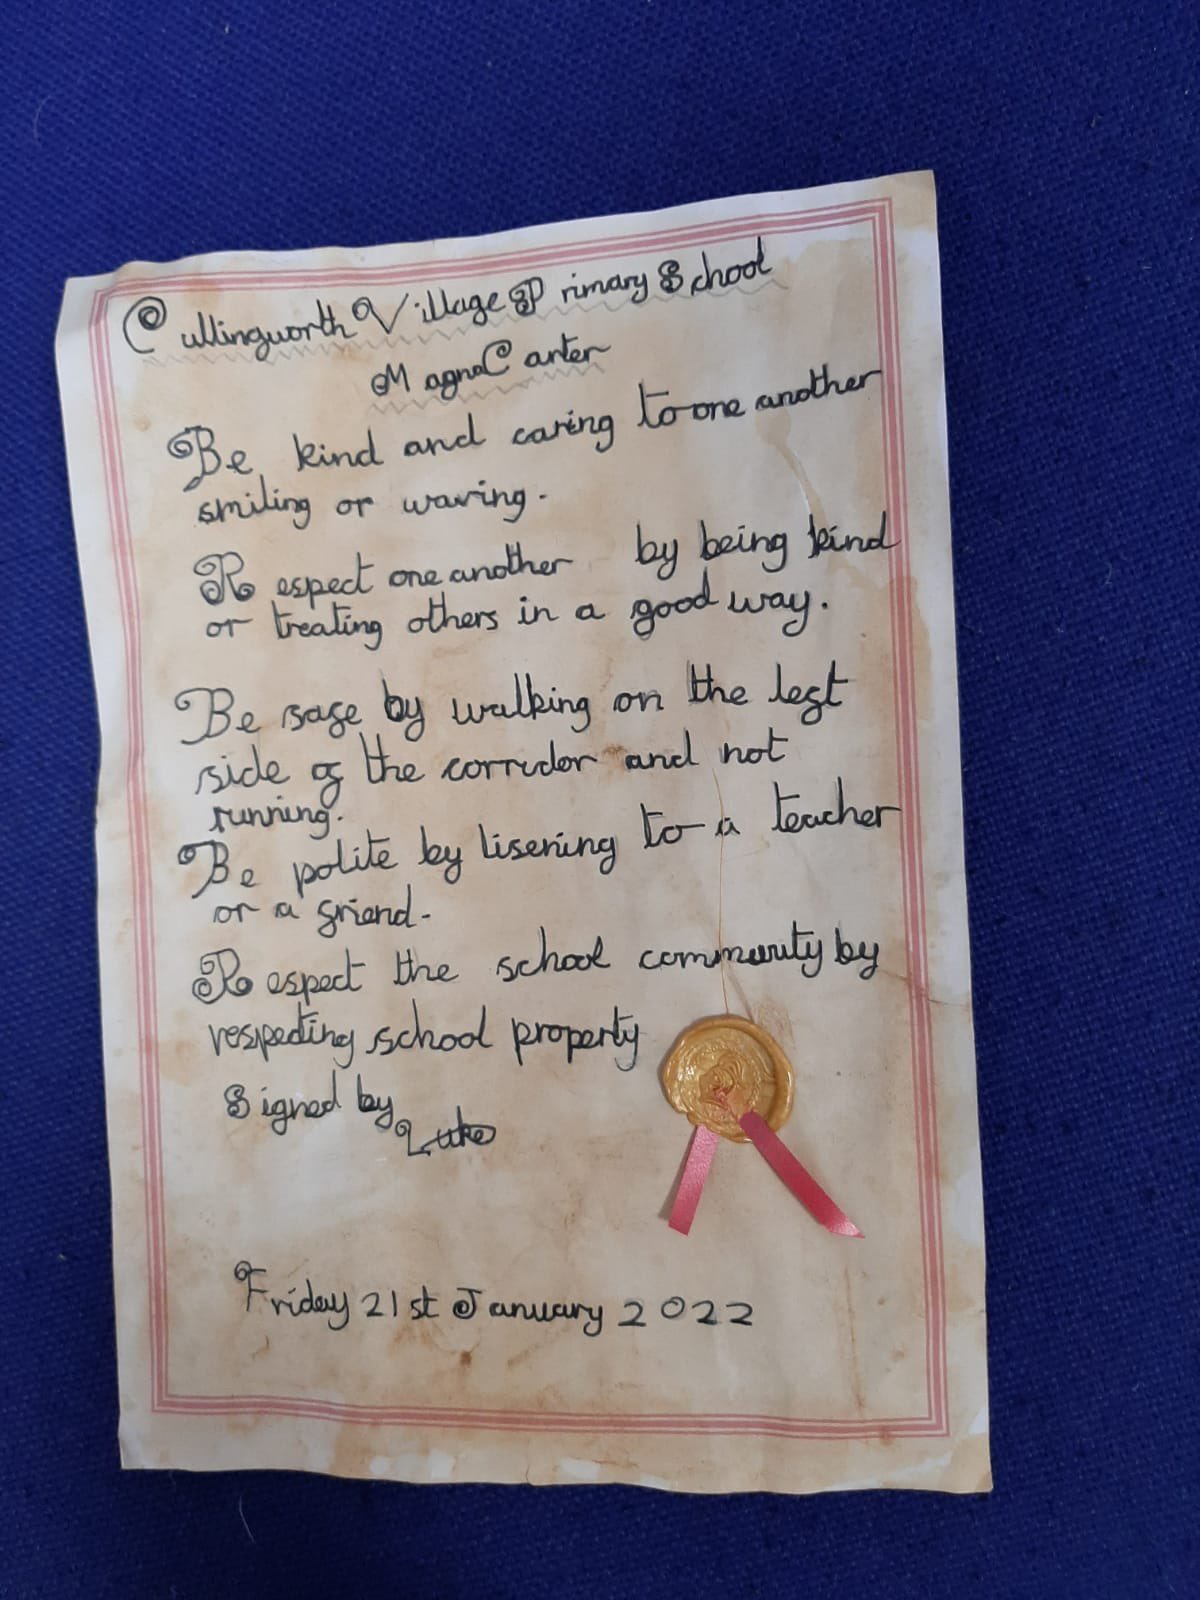 Cullingworth Village Primary School
Magna Carter
Be kind and caring to one another
smiling or waving.
Respect one another by being kind
or treating others in a good way.
Be safe by walking on the left
side of the corridor and not
running.
Be polite by lisening to a teacher
or a friend.
Respect the school community by
respecting school property
Signed by
Luke
Friday 21st January 2022